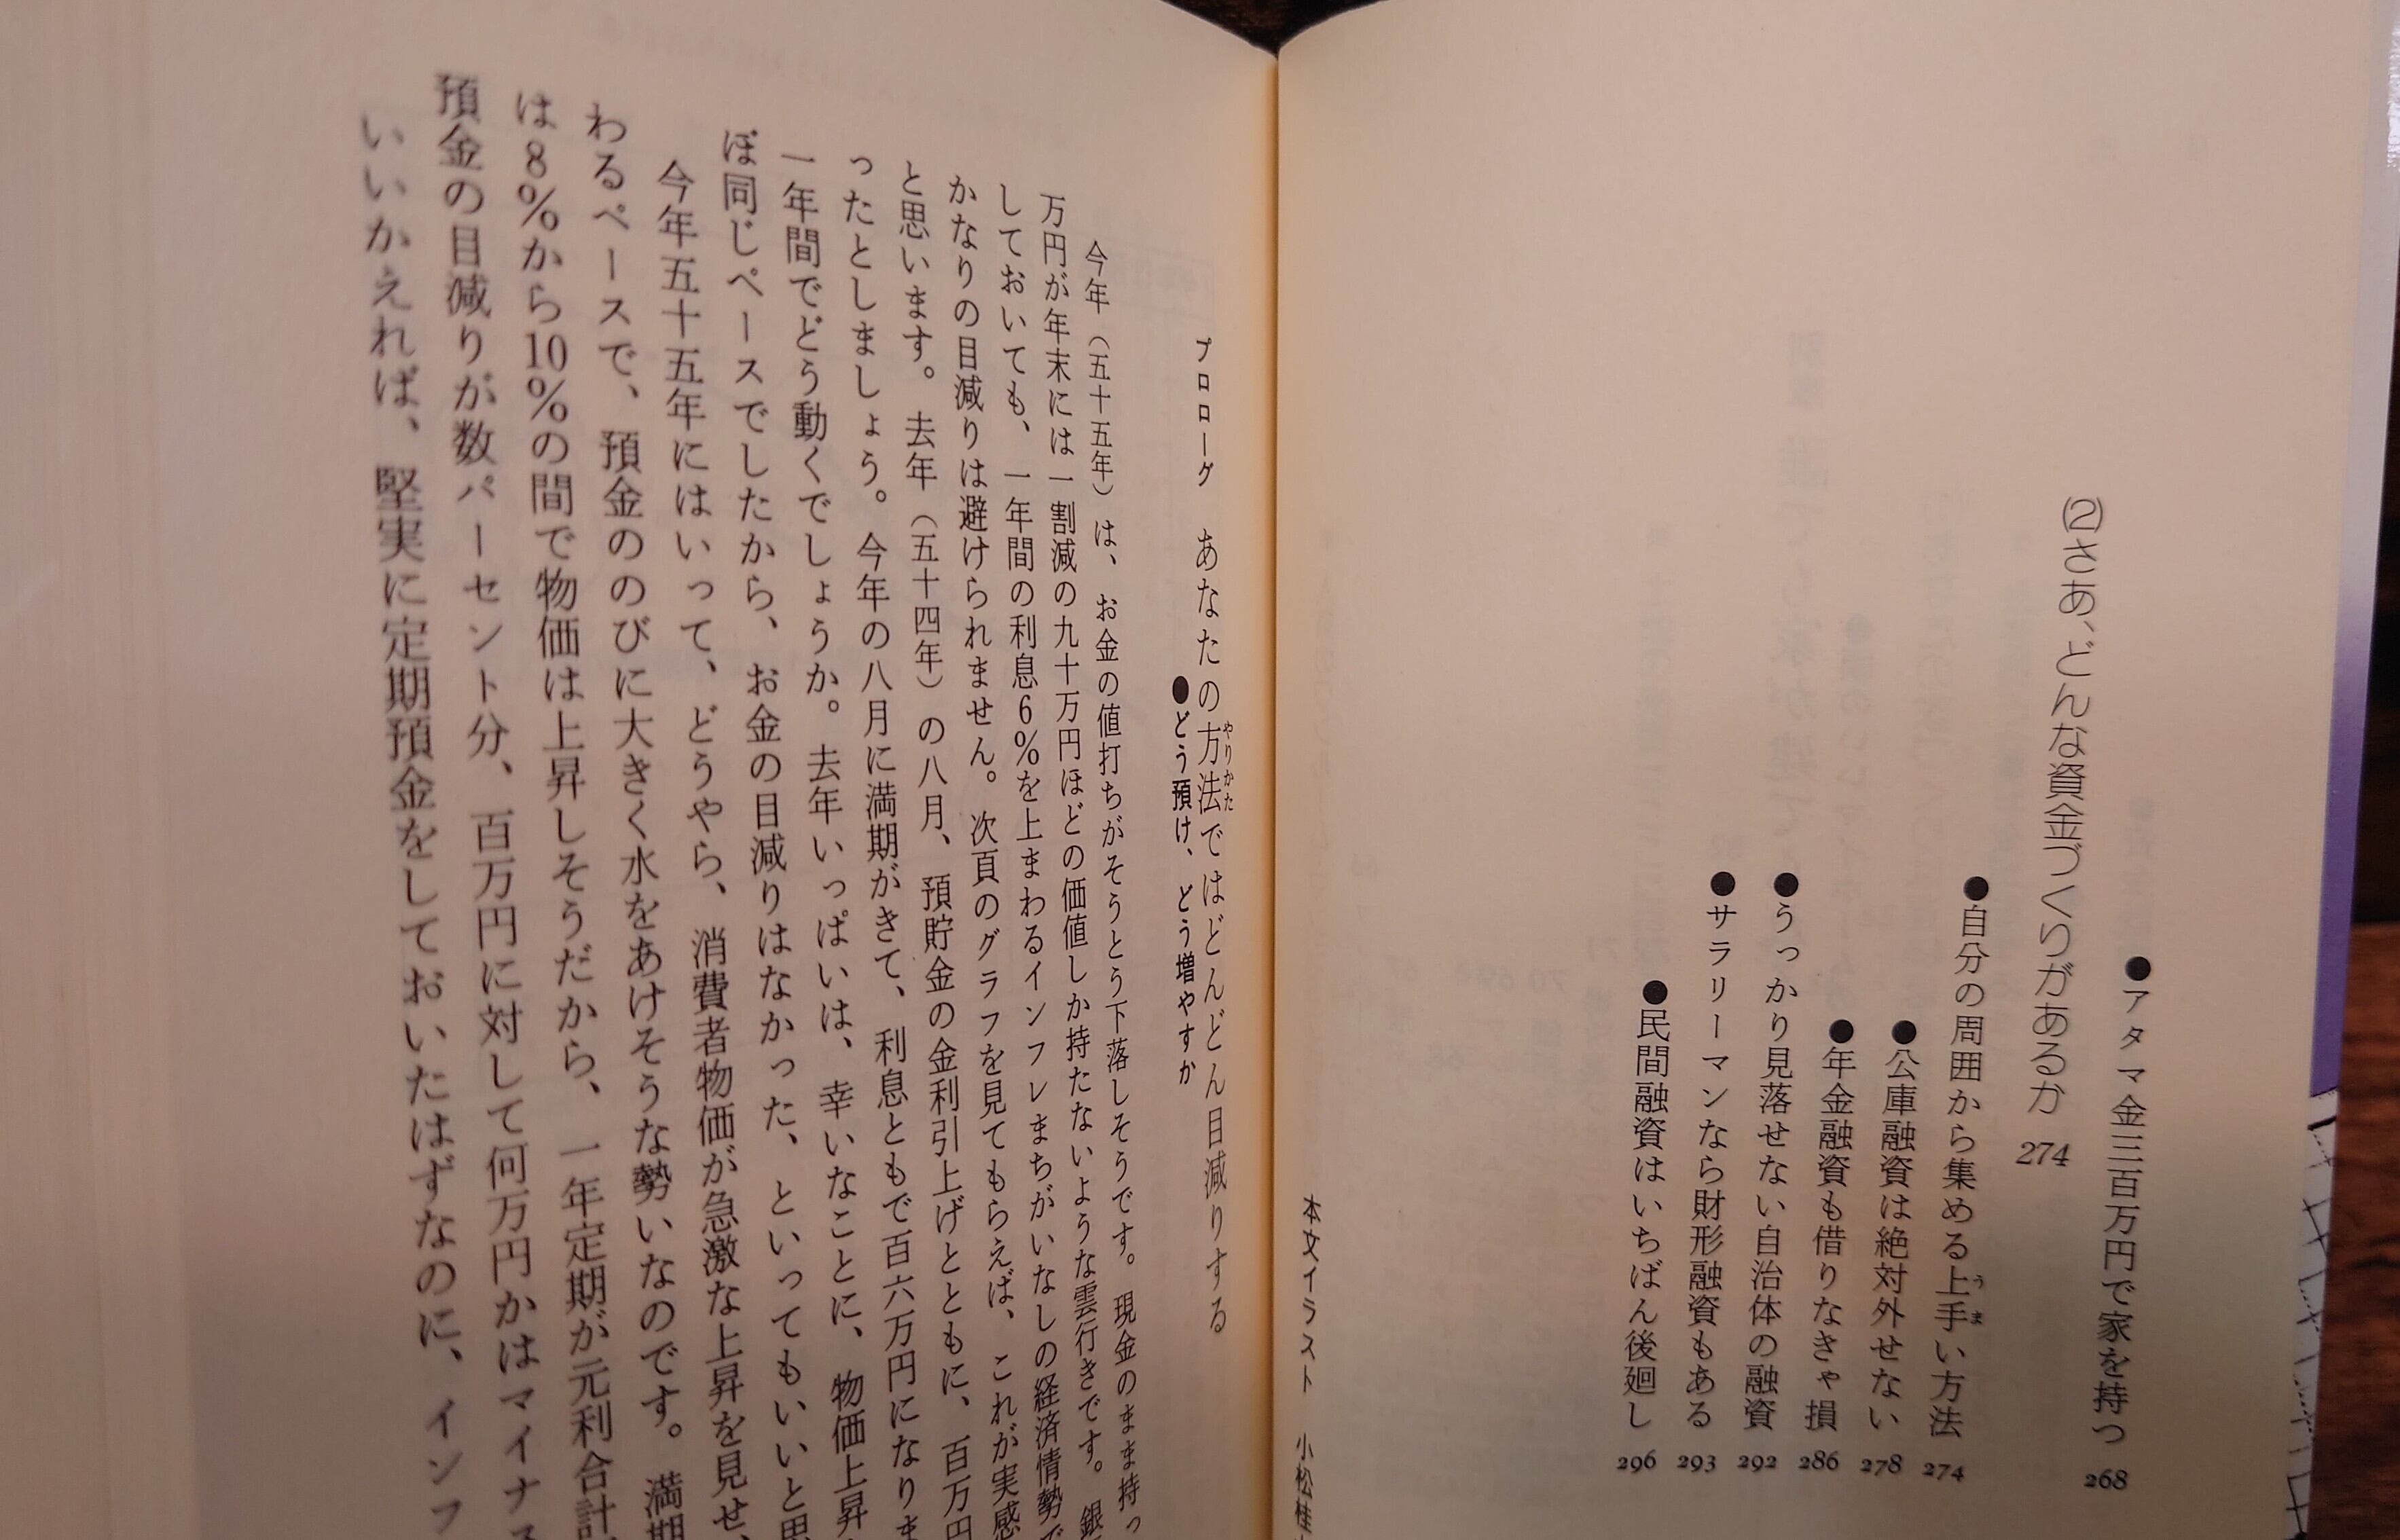 ●アタマ金三百万円で家を持つ 268
⑵さあ、どんな資金づくりがあるか 274
●自分の周囲から集める上手い方法 274
うま
●公庫融資は絶対外せない 278
●年金融資も借りなきゃ損 286
●うっかり見落せない自治体の融資 292
●サラリーマンなら財形融資もある 293
●民間融資はいちばん後廻し 296
本文イラスト 小松桂
プロローグ あなたの方法ではどんどん目減りする
やりかた
●どう預け、どう増やすか
今年（五十五年）は、お金の値打ちがそうとう下落しそうです。現金のまま持っ
万円が年末には一割減の九十万円ほどの価値しか持たないような雲行きです。銀
しておいても、一年間の利息6%を上まわるインフレまちがいなしの経済情勢で
かなりの目減りは避けられません。次頁のグラフを見てもらえば、これが実感
と思います。去年（五十四年）の八月、預貯金の金利引上げとともに、百万円
ったとしましょう。今年の八月に満期がきて、利息ともで百六万円になりま
一年間でどう動くでしょうか。去年いっぱいは、幸いなことに、物価上昇
ぼ同じペースでしたから、お金の目減りはなかった、といってもいいと思
今年五十五年にはいって、どうやら、消費者物価が急激な上昇を見せ、
わるペースで、預金ののびに大きく水をあけそうな勢いなのです。満期
は8%から10%の間で物価は上昇しそうだから、一年定期が元利合計
預金の目減りが数パーセント分、百万円に対して何万円かはマイナス
いいかえれば、堅実に定期預金をしておいたはずなのに、インフ